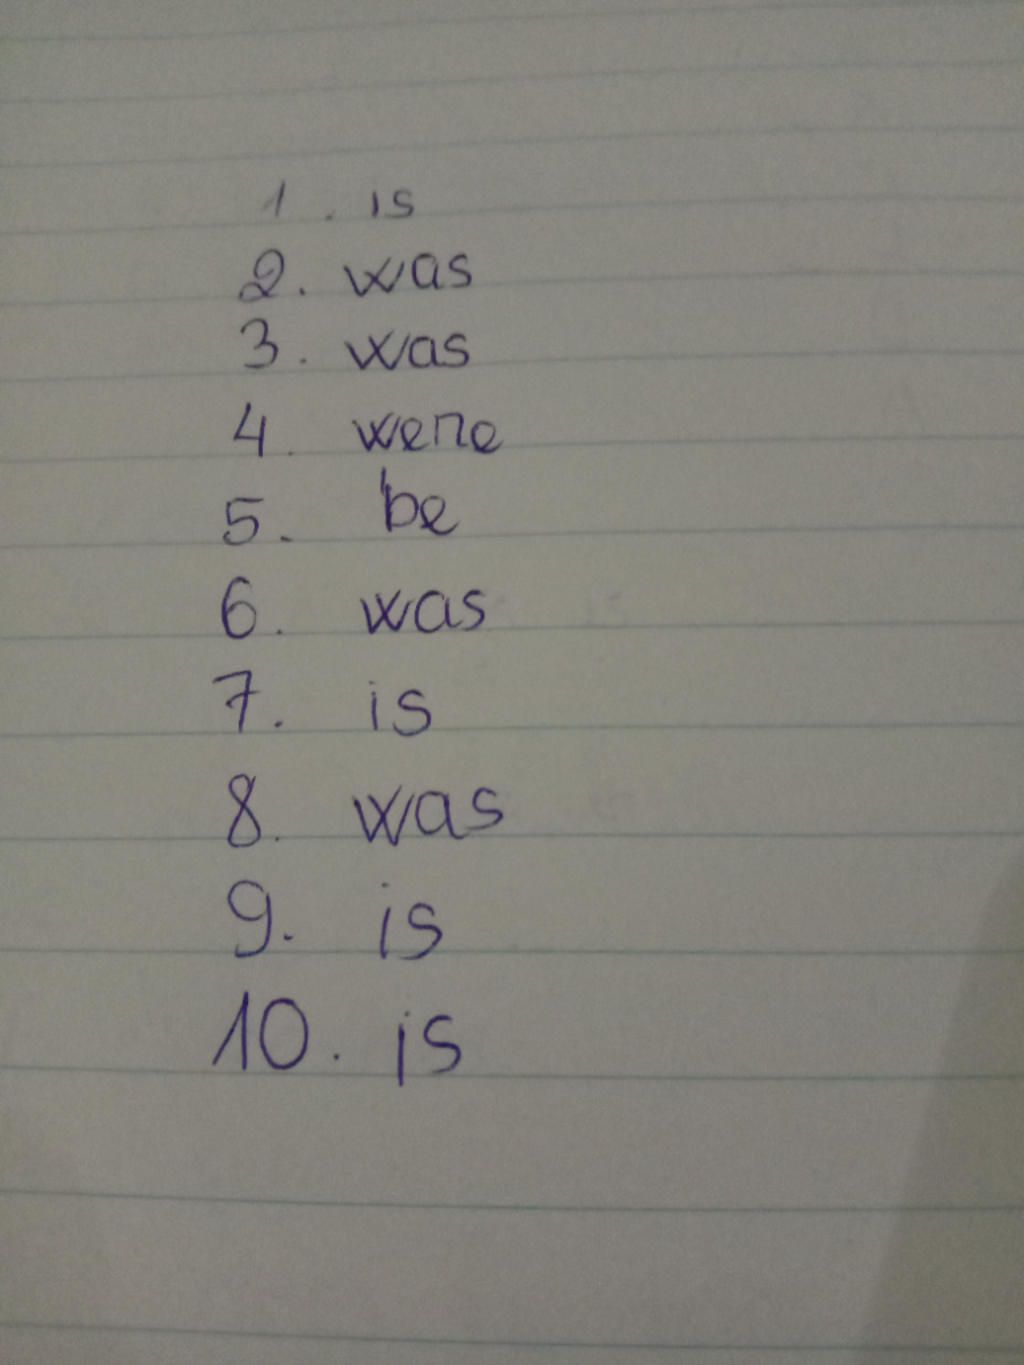 1. is
2. was
3. was
4. were
5. be
6. was
7. is
8. was
9. is
10. is